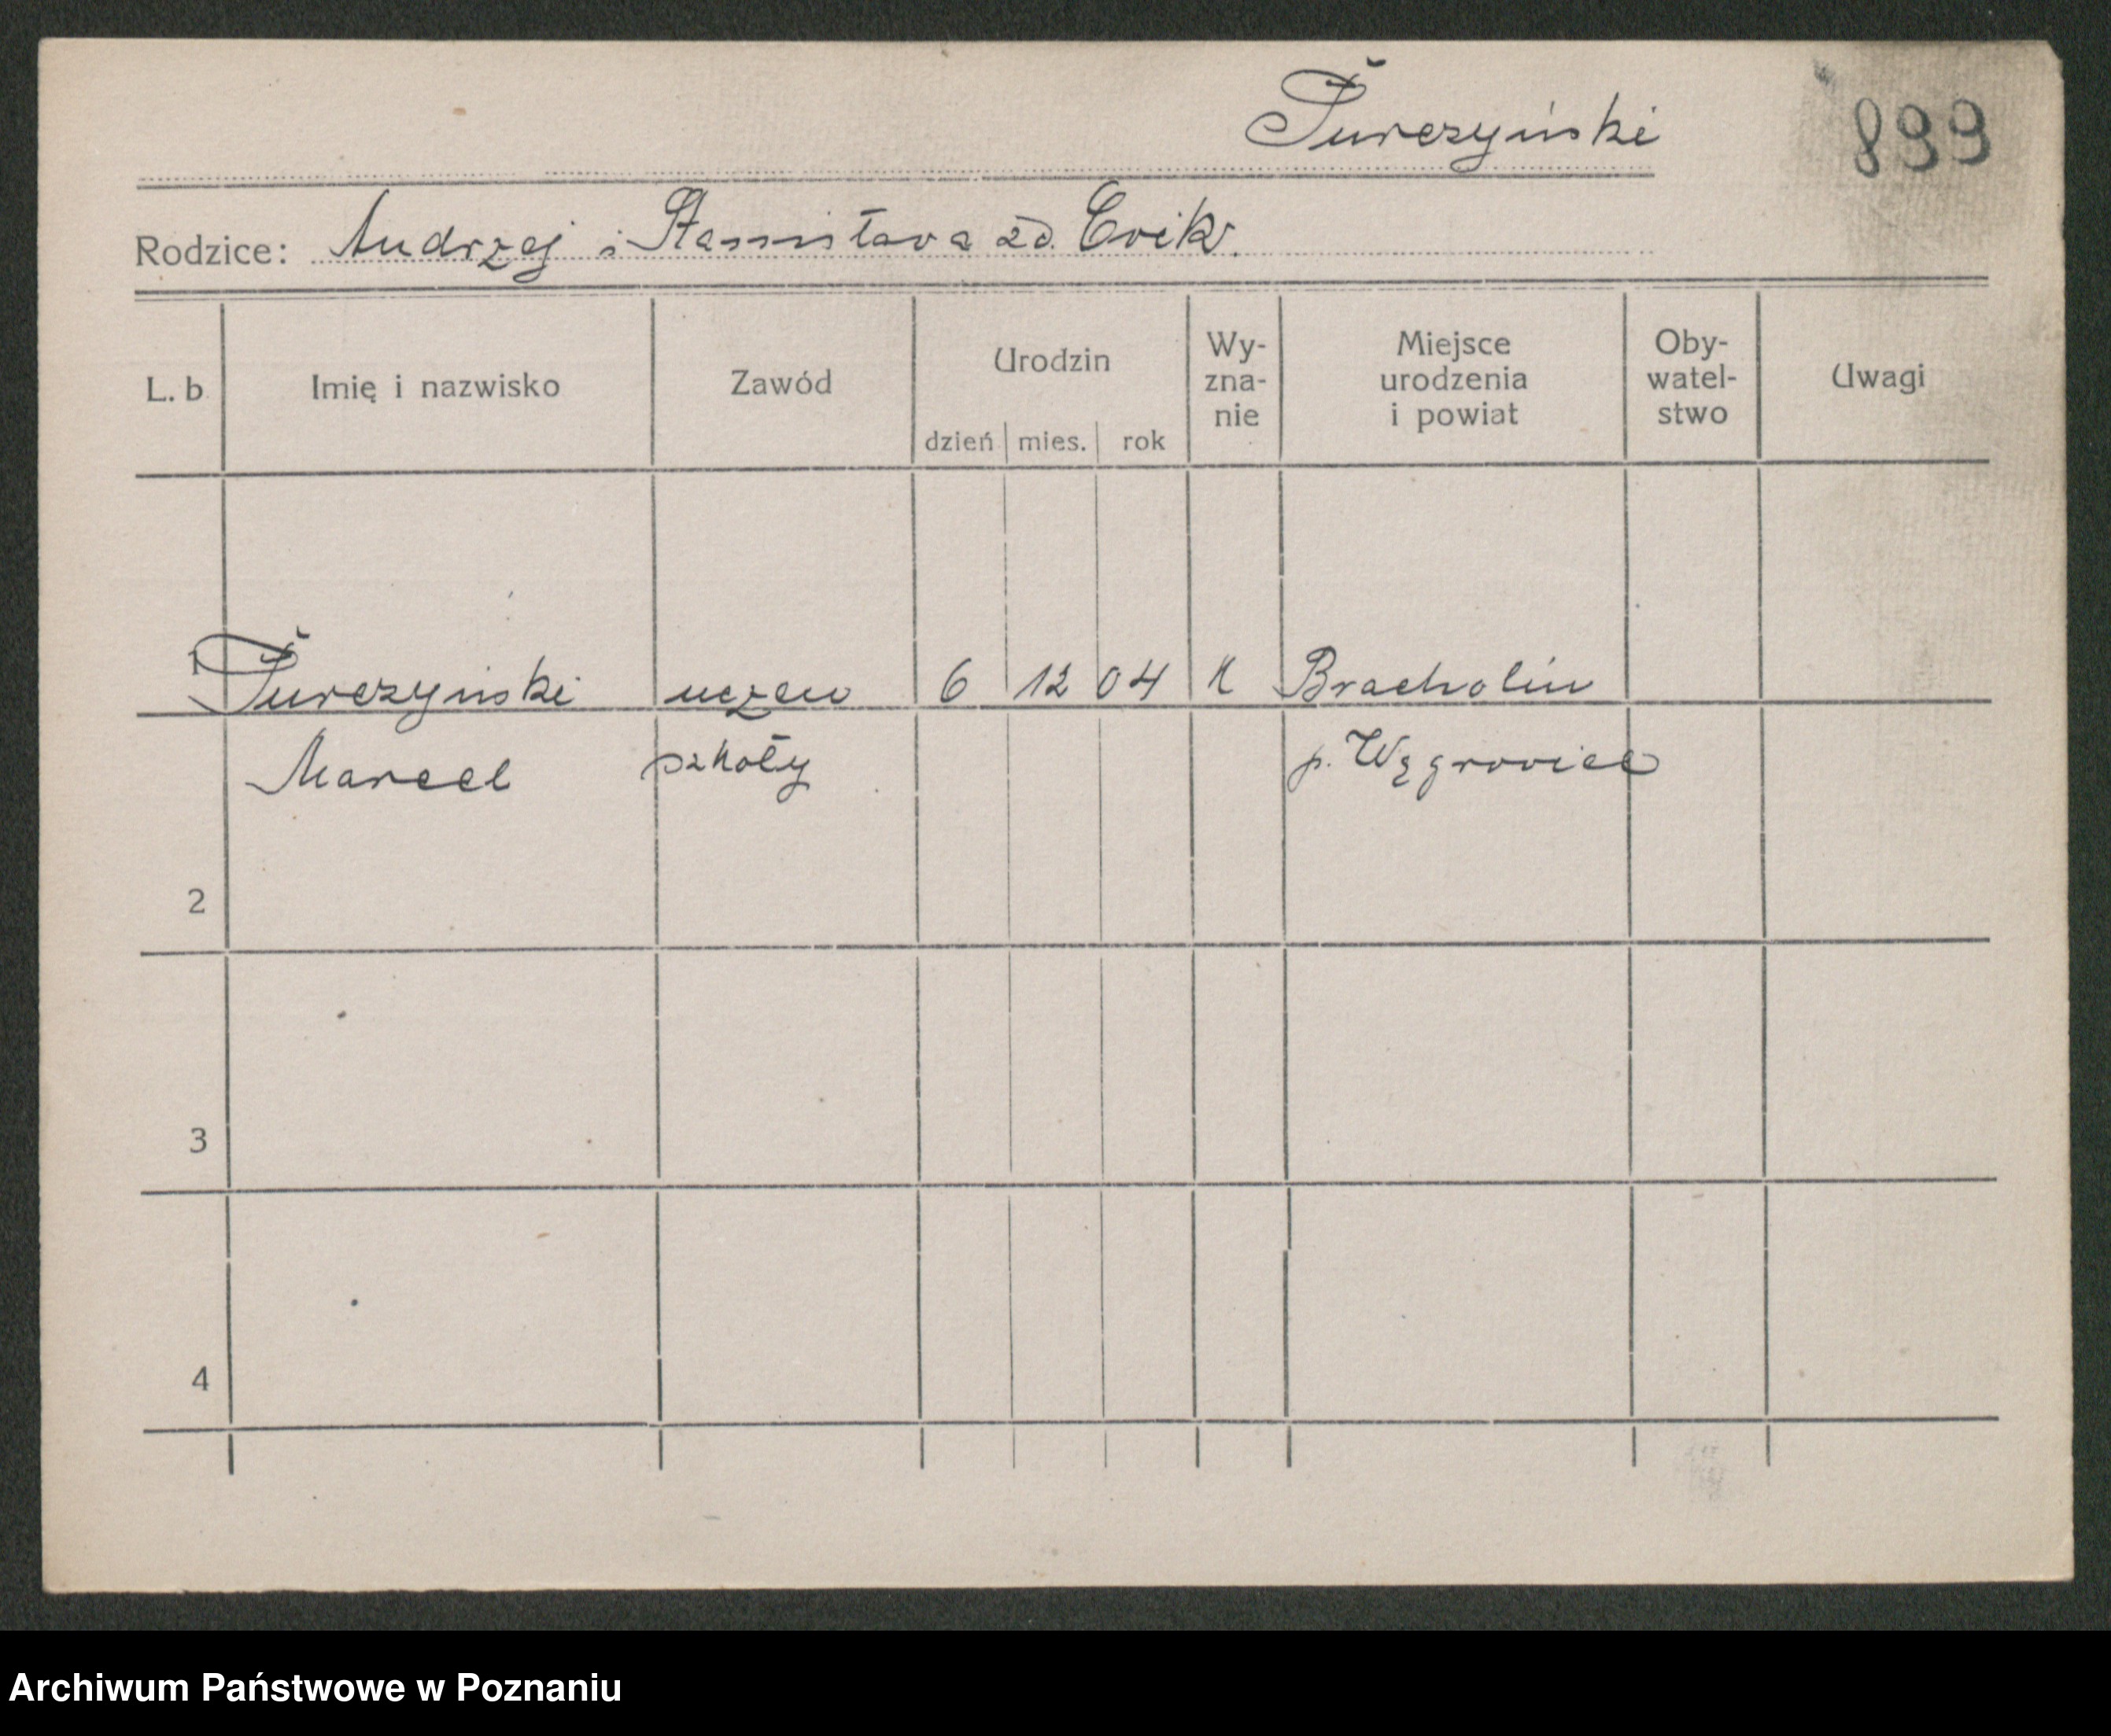 Turczyński
899
Rodzice: Andrzej i Stanisława zd. Cwik.
L. b Imię i nazwisko Zawód Urodzin dzień mies. rok Wy-zna-nie Miejsce urodzenia i powiat Oby-watel-stwo Uwagi
1 Turczyński uczeń 6 12 04 K Bracholin
Marcel szkoły p. Wągrowiec
2
3
4
Archiwum Państwowe w Poznaniu